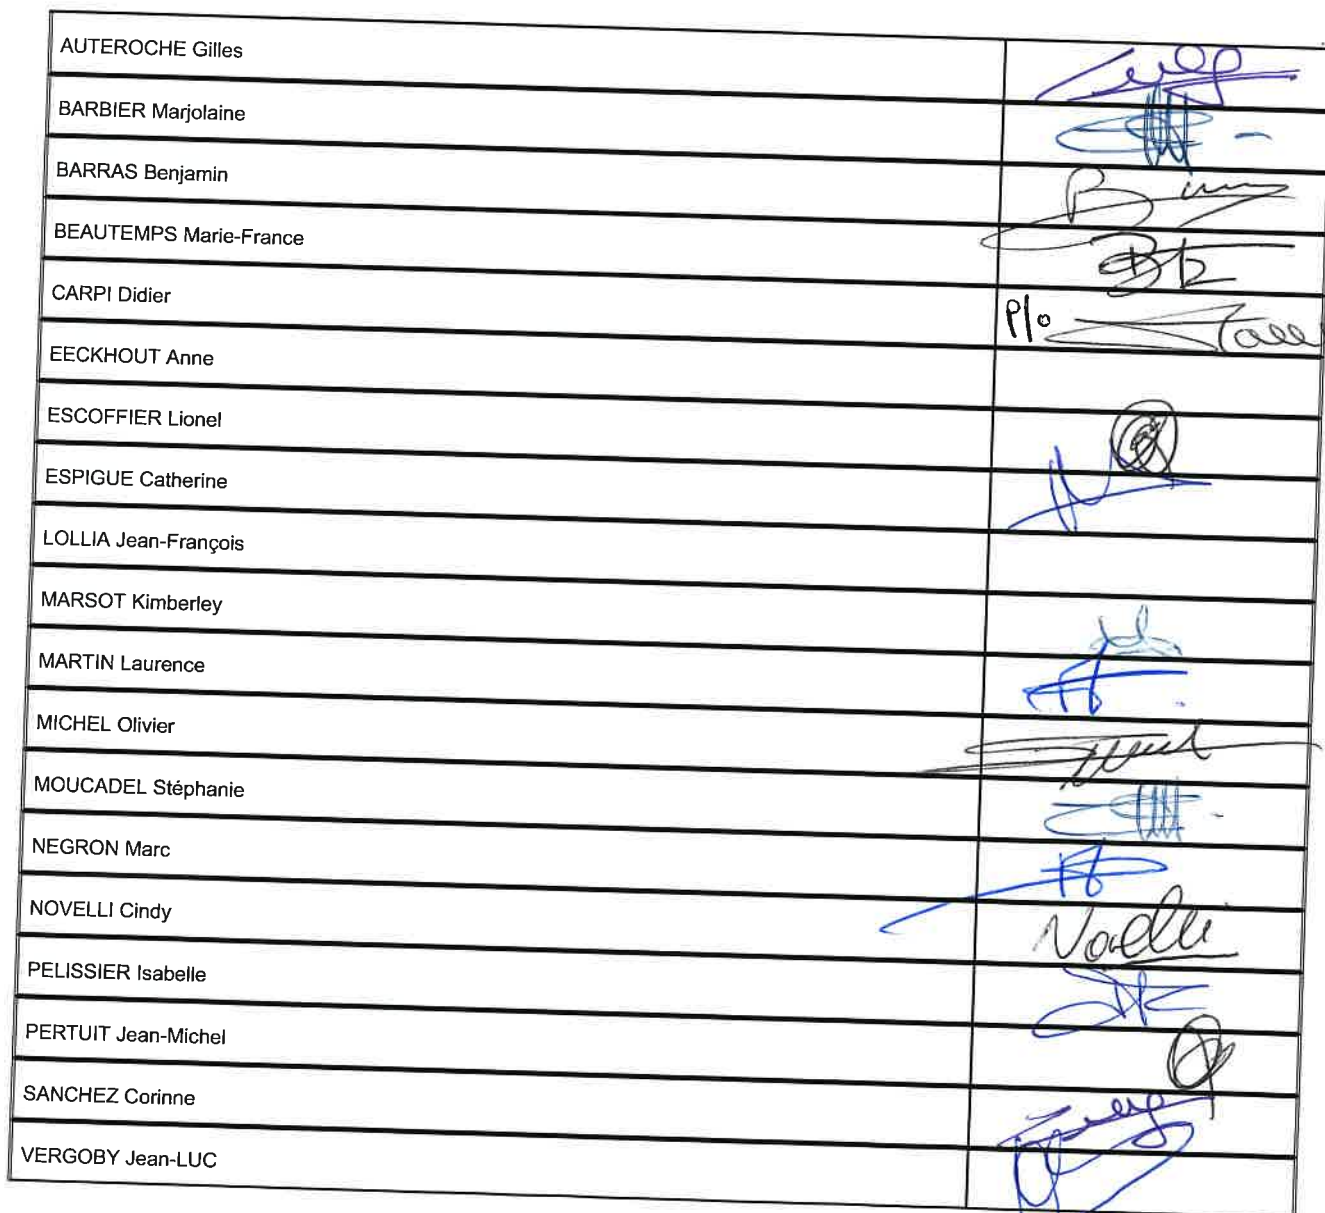 AUTEROCHE Gilles
BARBIER Marjolaine
BARRAS Benjamin
BEAUTEMPS Marie-France
CARPI Didier
P/o
EECKHOUT Anne
ESCOFFIER Lionel
ESPIGUE Catherine
LOLLIA Jean-François
MARSOT Kimberley
MARTIN Laurence
MICHEL Olivier
MOUCADEL Stéphanie
NEGRON Marc
NOVELLI Cindy
PELISSIER Isabelle
PERTUIT Jean-Michel
SANCHEZ Corinne
VERGOBY Jean-LUC